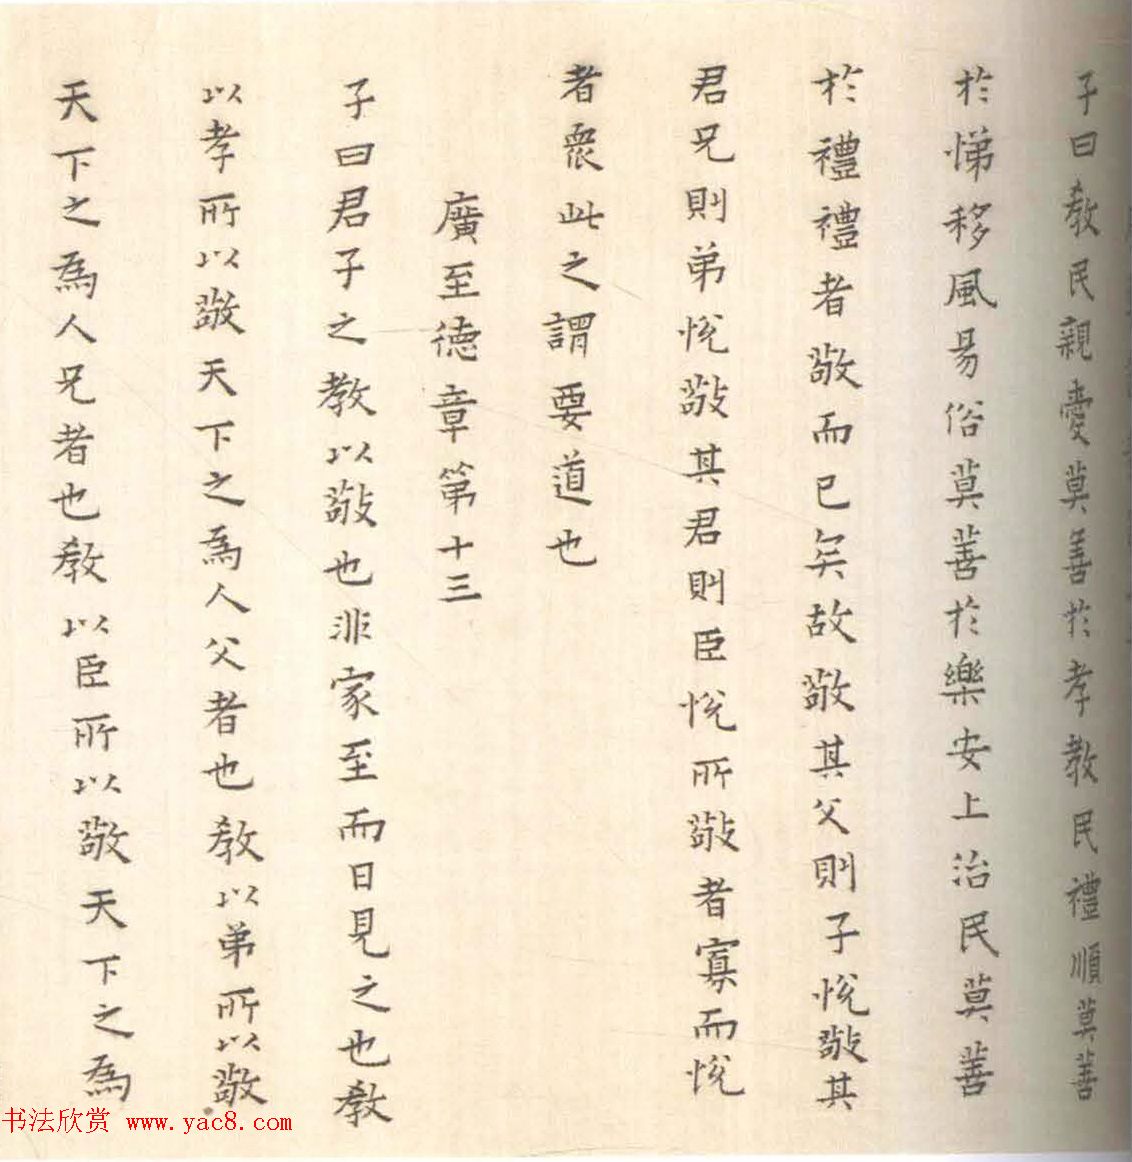 子曰教民親愛莫善於孝教民禮順莫善
於悌移風易俗莫善於樂安上治民莫善
於禮禮者敬而已矣故敬其父則子悅敬其
君兄則弟悅敬其君則臣悅所敬者寡而悅
者衆此之謂要道也
廣至德章第十三
子曰君子之教以敬也非家至而日見之也教
以孝所以敬天下之為人父者也教以弟所以敬
天下之為人兄者也教以臣所以敬天下之為
书法欣赏 www.yac8.com